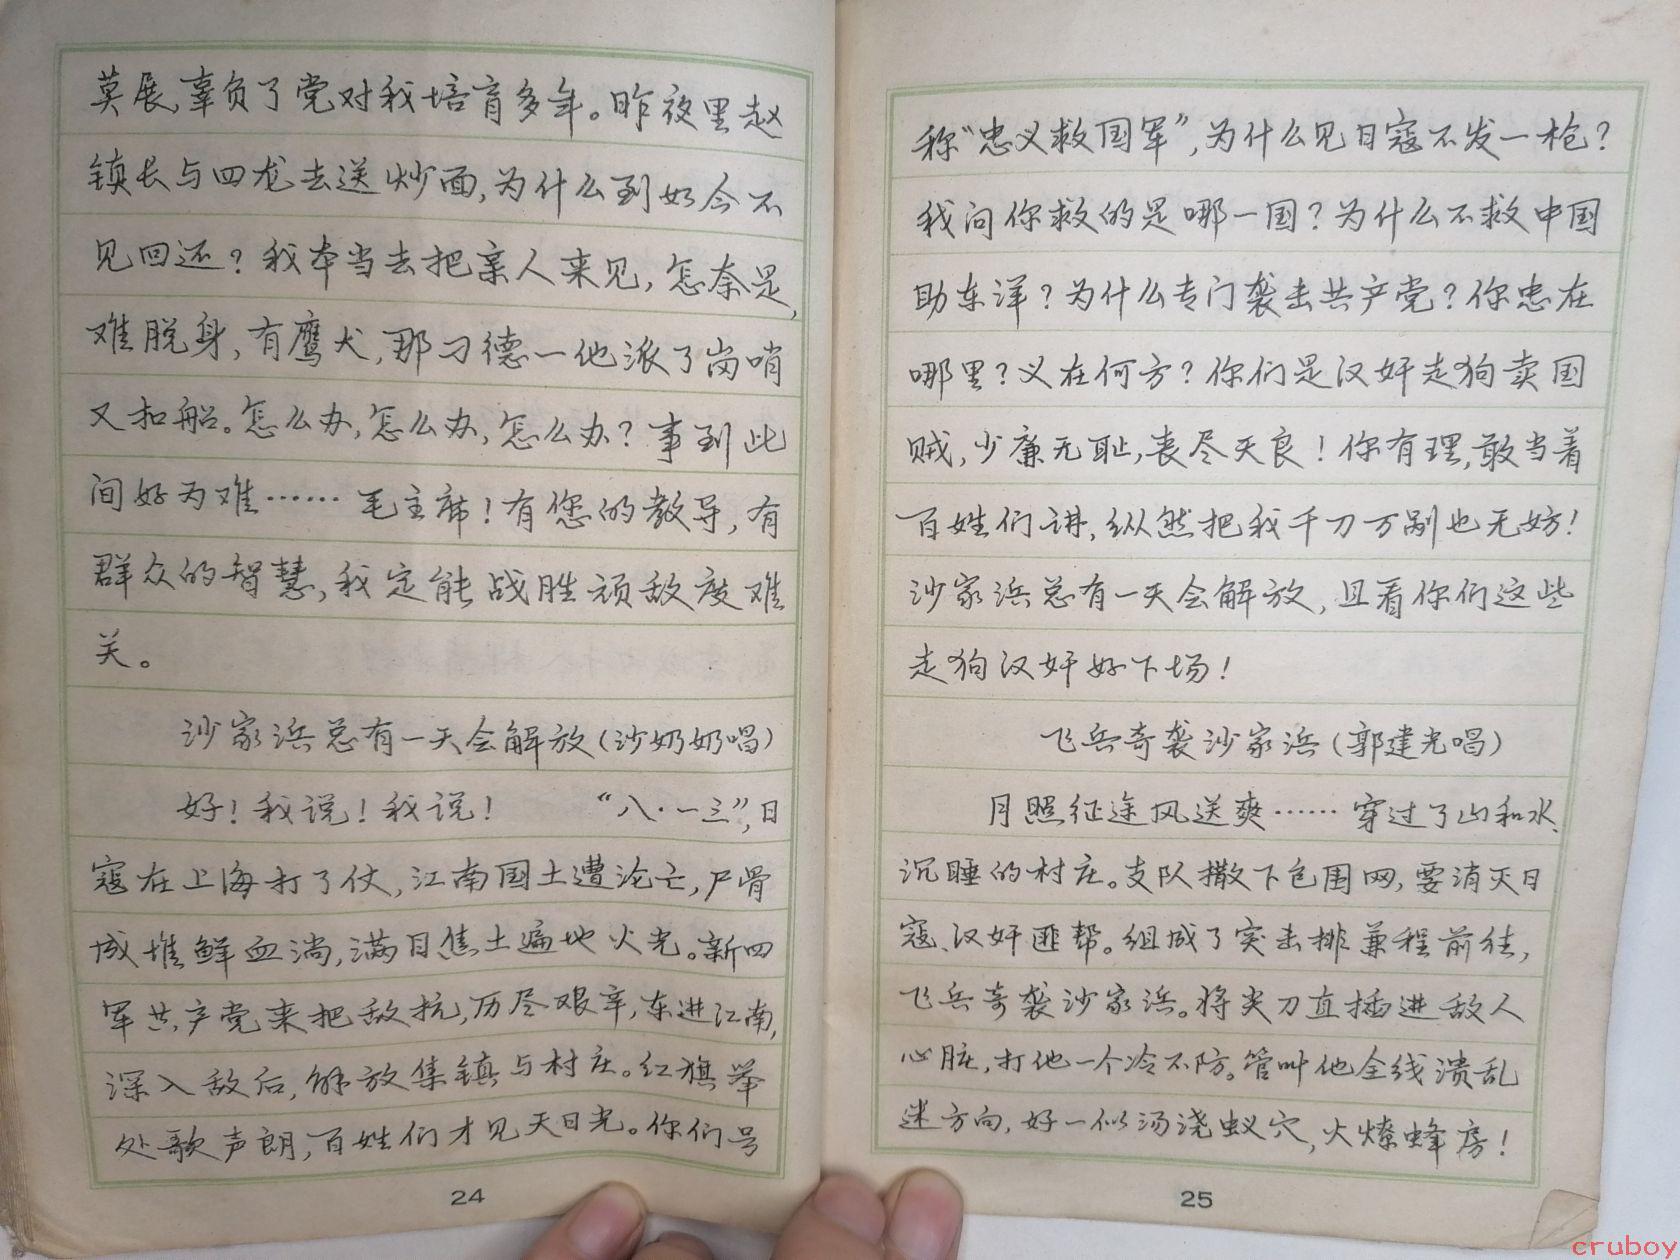 莫展,辜负了党对我培育多年。昨夜里赵
镇长与四龙去送炒面,为什么到如今不
见回还?我本当去把亲人来见,怎奈是,
难脱身,有鹰犬,那刁德一他派了岗哨
又扣船。怎么办,怎么办,怎么办?事到此
间好为难……毛主席!有您的教导,有
群众的智慧,我定能战胜顽敌度难
关。
沙家浜总有一天会解放(沙奶奶唱)
好!我说!我说! “八·一三”,日
寇在上海打了仗,江南国土遭沦亡,尸骨
成堆鲜血淌,满目焦土遍地火光。新四
军共产党来把敌抗,历尽艰辛,东进江南,
深入敌后,解放集镇与村庄。红旗举
处歌声朗,百姓们才见天日光。你们号
24
称“忠义救国军”,为什么见日寇不发一枪?
我问你救的是哪一国?为什么不救中国
助东洋?为什么专门袭击共产党?你忠在
哪里?义在何方?你们是汉奸走狗卖国
贼,少廉无耻,丧尽天良!你有理,敢当着
百姓们讲,纵然把我千刀万剐也无妨!
沙家浜总有一天会解放,且看你们这些
走狗汉奸好下场!
飞兵奇袭沙家浜(郭建光唱)
月照征途风送爽……穿过了山和水、
沉睡的村庄。支队撒下包围网,要消灭日
寇、汉奸匪帮。组成了突击排兼程前往,
飞兵奇袭沙家浜。将尖刀直插进敌人
心脏,打他一个冷不防。管叫他全线溃乱
迷方向,好一似汤浇蚁穴,火燎蜂房!
25
cruboy